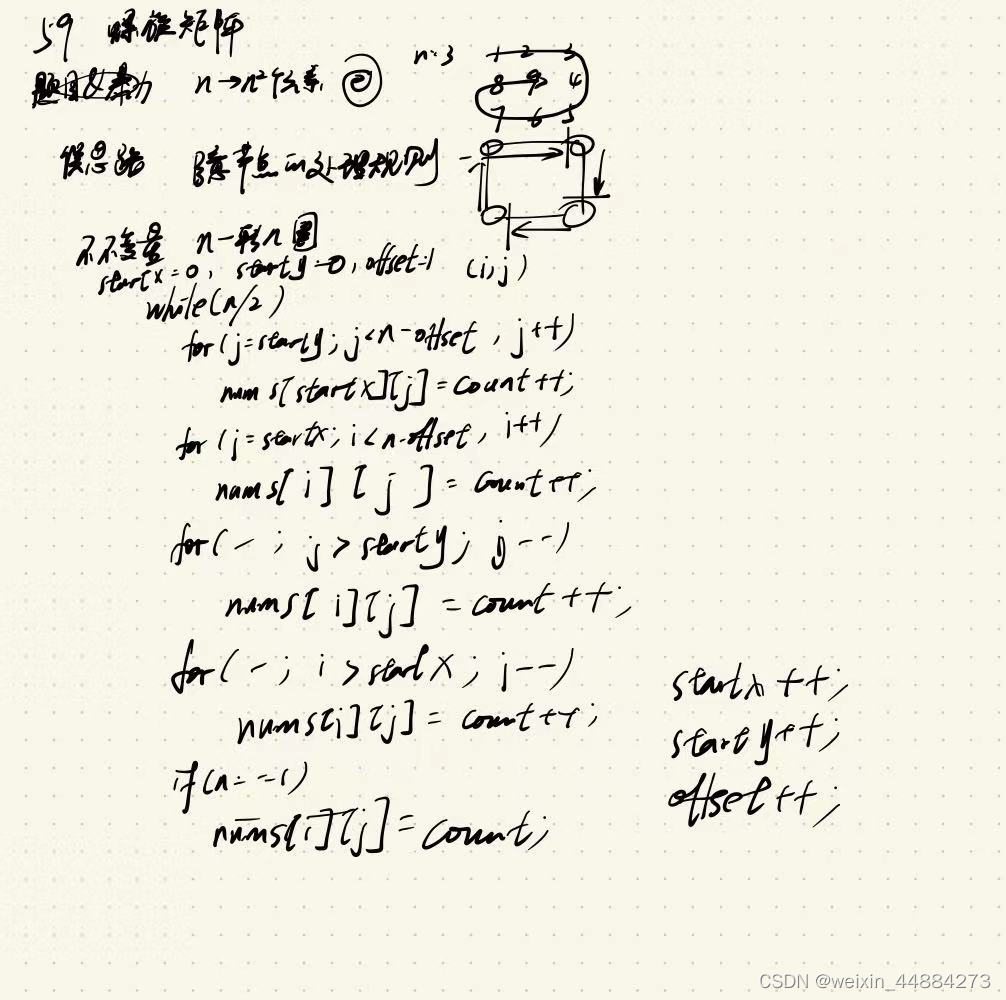 59 螺旋矩阵
n:3 1 2 3
8 9 4
7 6 5
n→n²个元素
思路 节点的处理规则
变量 n一转n圈
startx=0, starty=0, offset=1 (i,j)
while(n/2)
for(j=starty; j<n-offset, j++)
nums[startx][j]=count++;
for(j=startx; i<n-offset, i++)
nums[i][j]=count++;
for(- ; j>starty; j--)
nums[i][j]=count++;
for(-; i>startx; j--)
nums[i][j]=count++;
startx++;
starty++;
offset++;
if(n==1)
nums[i][j]=count;
CSDN @weixin_44884273